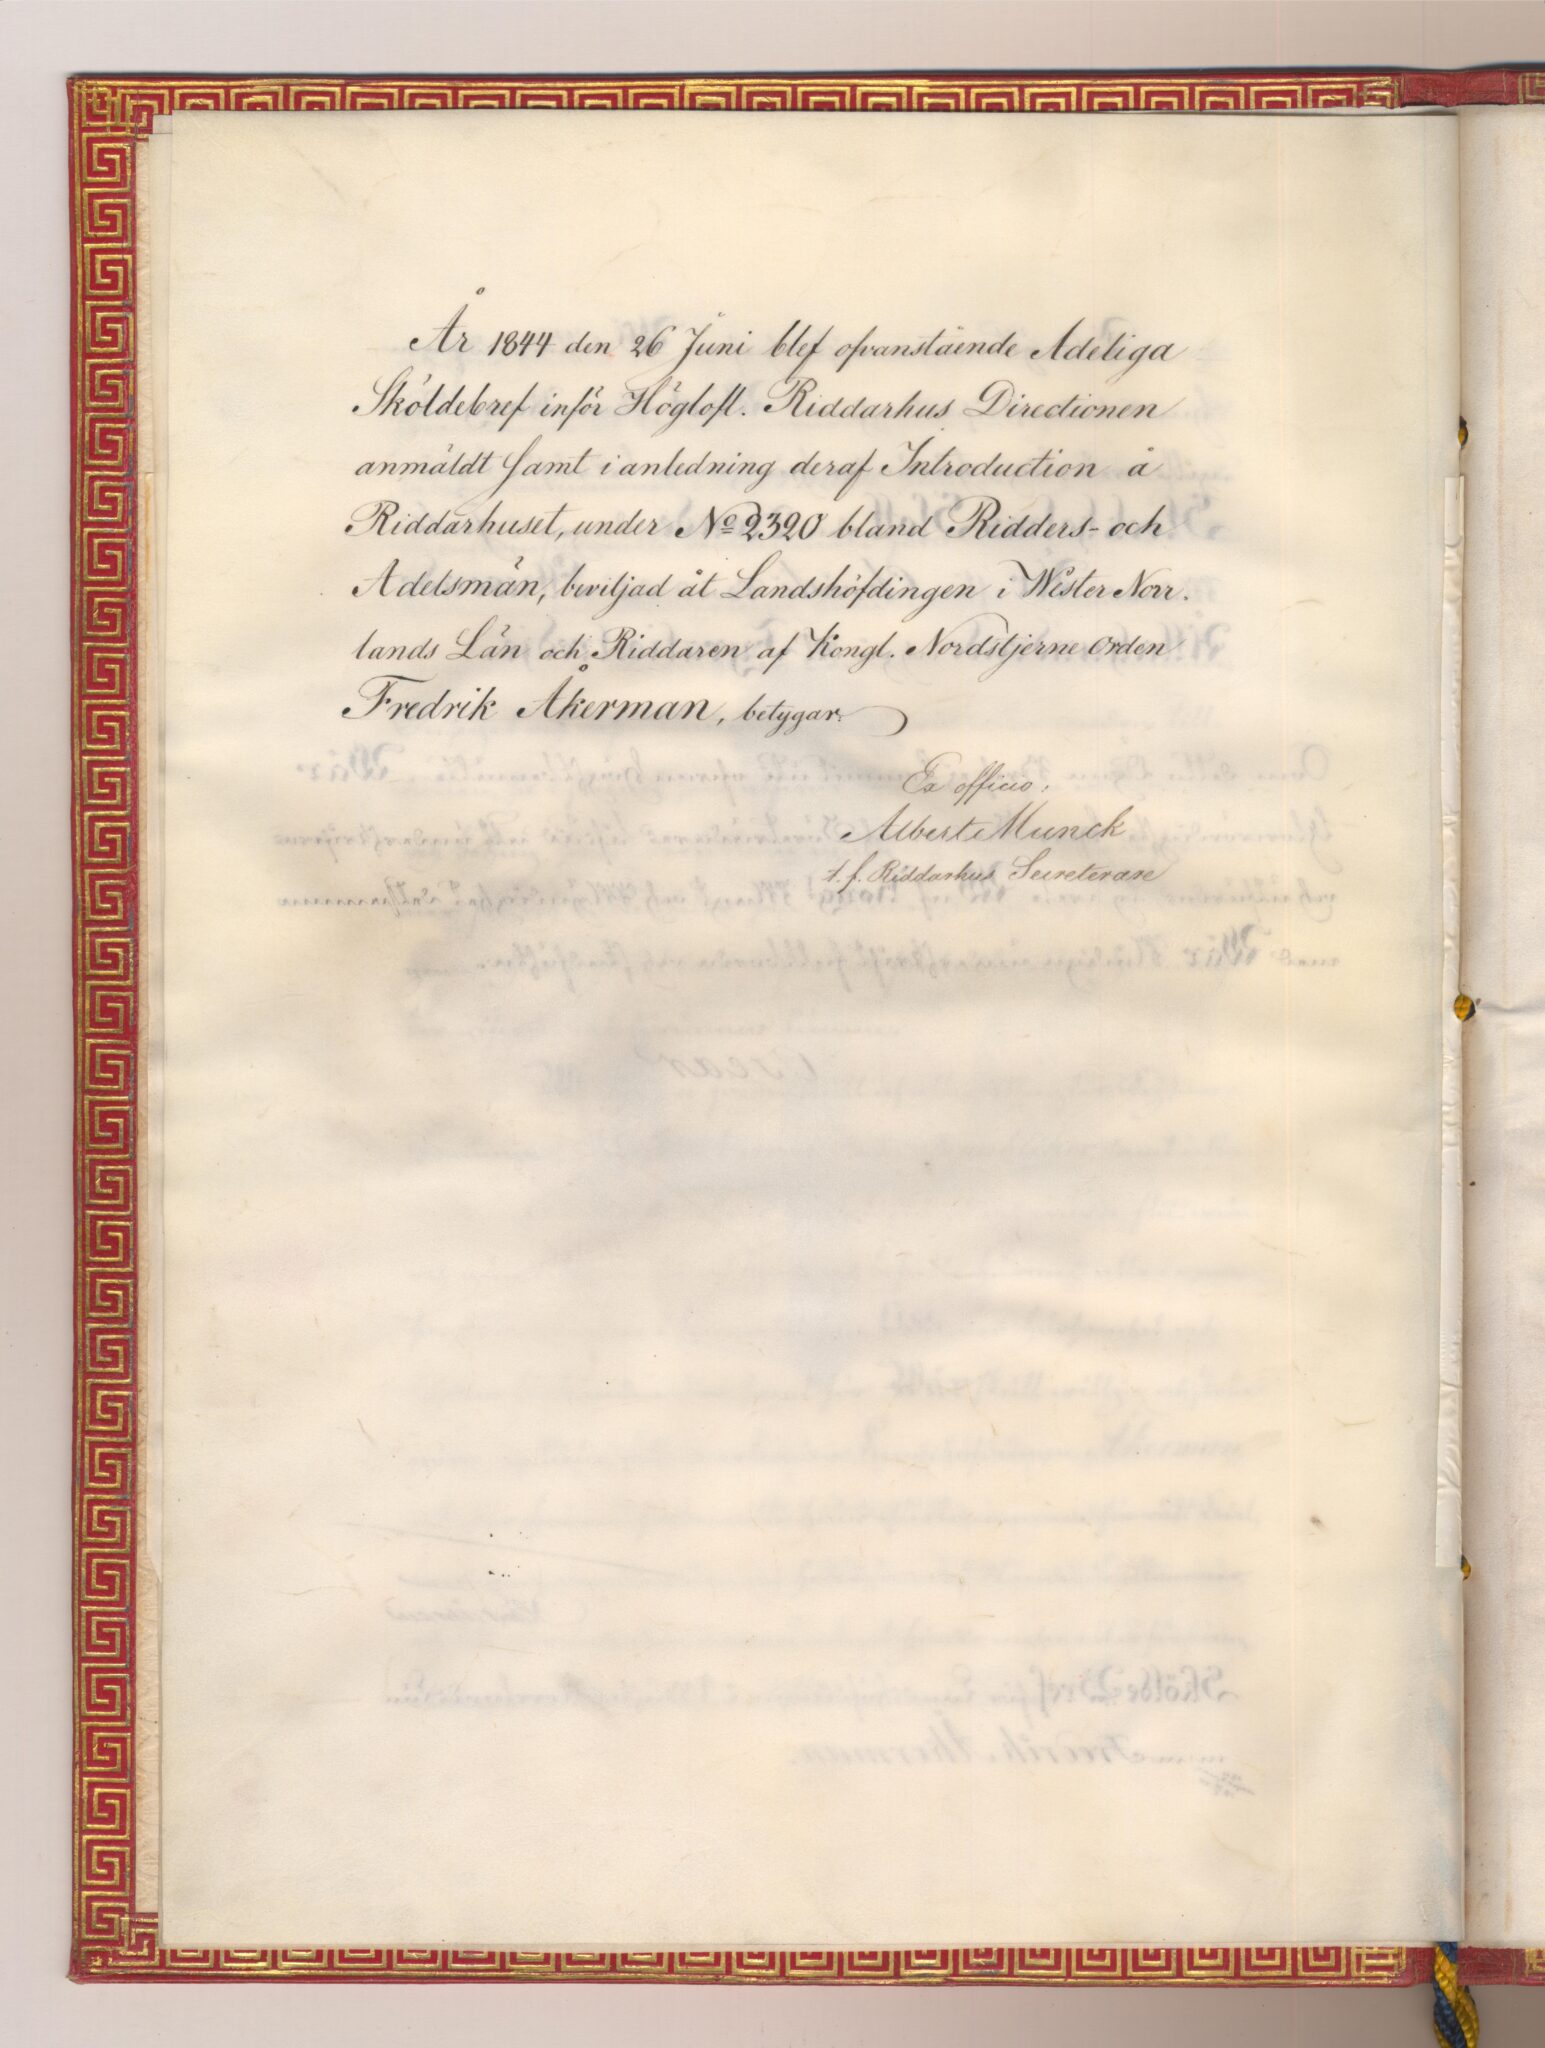 År 1844 den 26 Juni blef ofvanstående Adeliga
Sköldebref inför Höglofl. Riddarhus Directionen
anmäldt samt i anledning deraf Introduction å
Riddarhuset, under No 2320 bland Ridders- och
Adelsmän, beviljad åt Landshöfdingen i Wester Norr.
lands Län och Riddaren af Kongl. Nordstjerne Orden
Fredrik Åkerman, betygar.
Ex officio.
Albert Munck
t. f. Riddarhus Secreterare